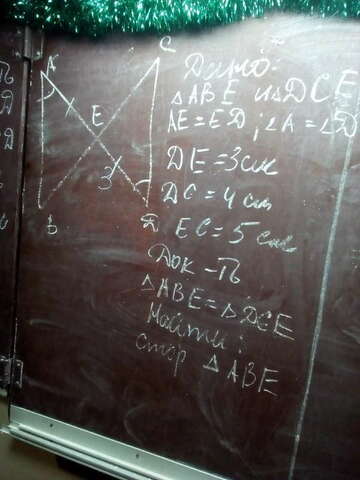 A
C
E
3
B
D
Дано:
△ABE и △DCE
AE=ED; ∠A=∠D
DE=3см
DC=4см
EC=5см
Док-ть
△ABE=△DCE
Найти:
стор △ABE